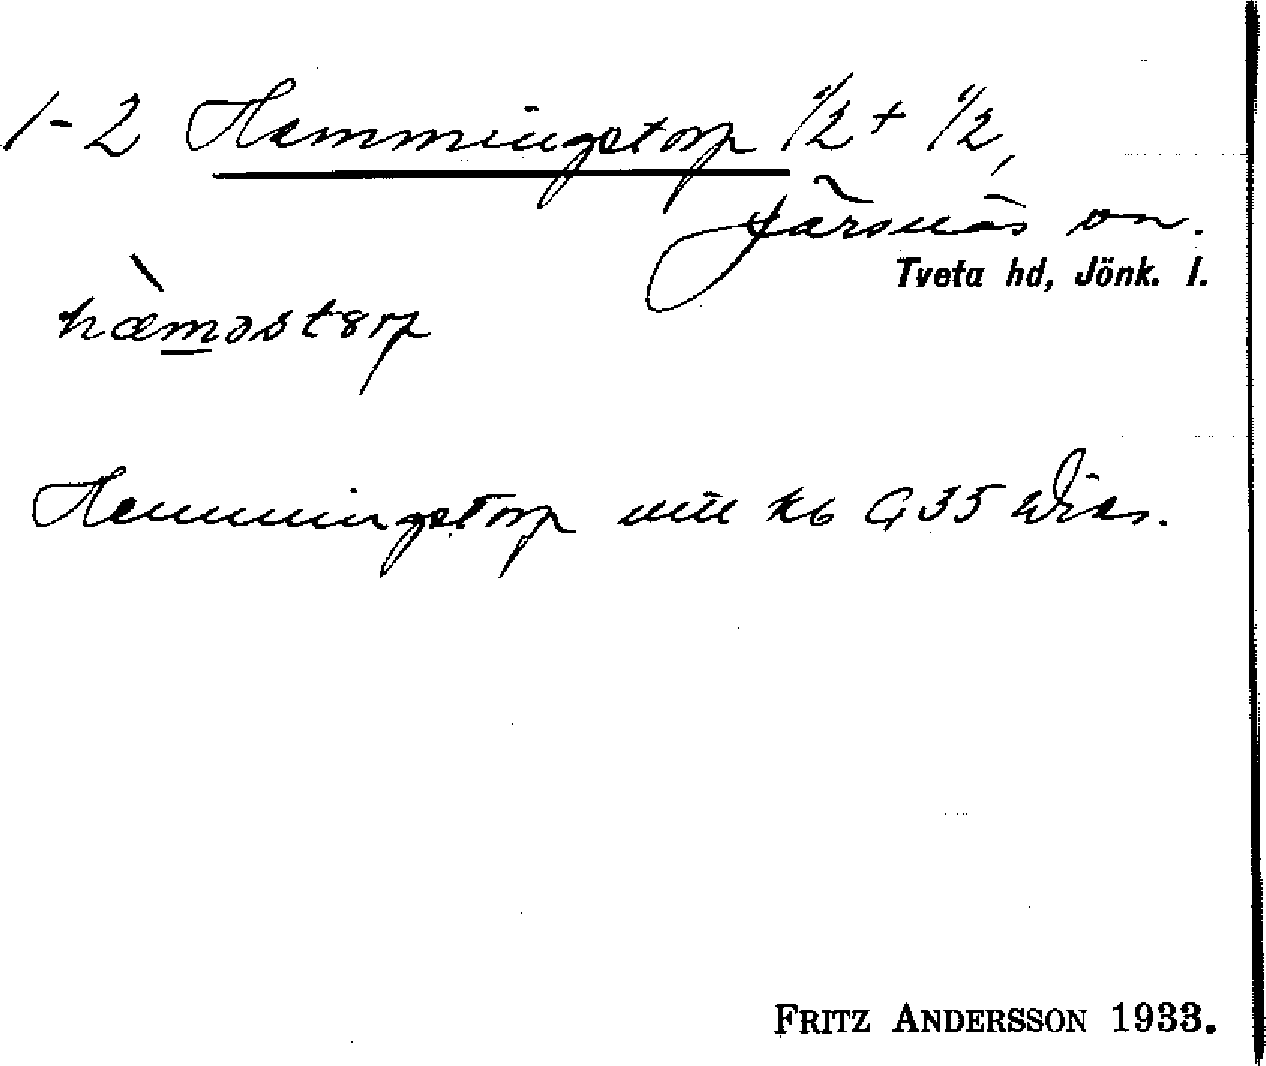 1-2 Hemmingstorp 1/2 + 1/2,
Järsnäs sn.
Tveta hd, Jönk. l.
hæ̀məstərp
Hemmingstorp utt kb G35
FRITZ ANDERSSON 1933.